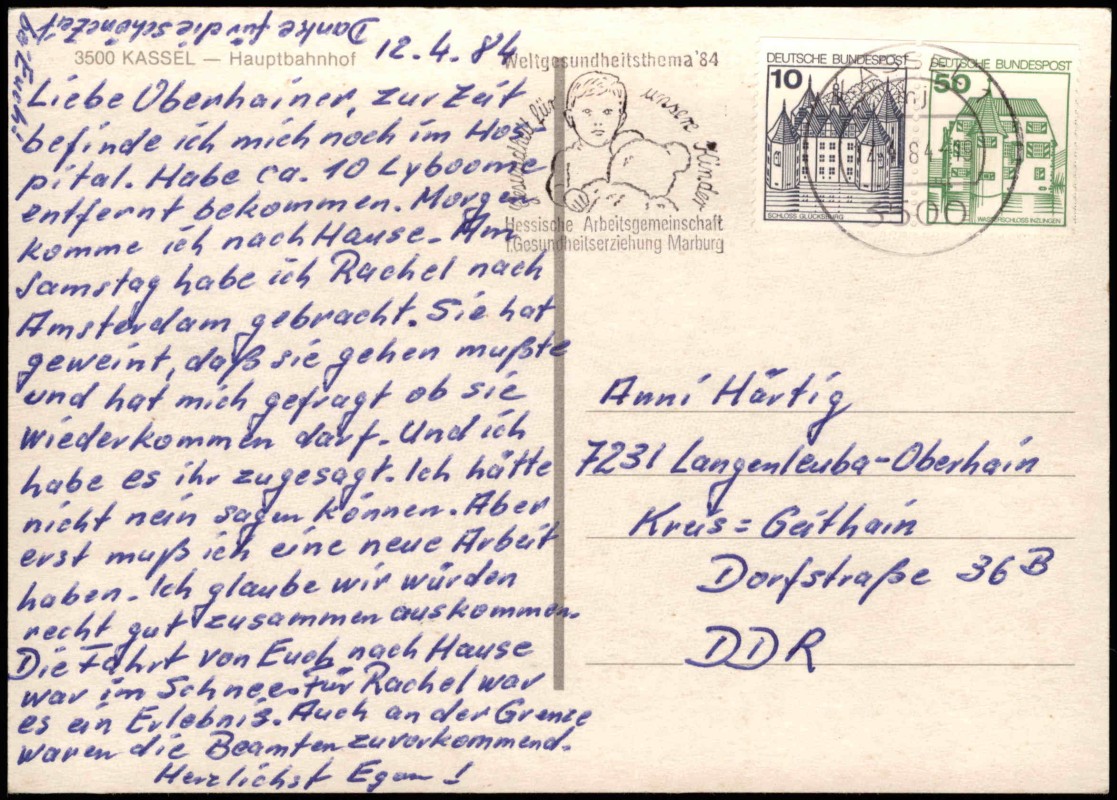 Danke für die schöne Zeit
bei Euch!
3500 KASSEL — Hauptbahnhof
12.4.84
Liebe Oberhainer, zur Zeit
befinde ich mich noch im Hos-
pital. Habe ca. 10 Lyboome
entfernt bekommen. Morgen
komme ich nach Hause. Am
Samstag habe ich Rachel nach
Amsterdam gebracht. Sie hat
geweint, daß sie gehen mußte
und hat mich gefragt ob sie
wiederkommen darf. Und ich
habe es ihr zugesagt. Ich hätte
nicht nein sagen können. Aber
erst muß ich eine neue Arbeit
haben. Ich glaube wir würden
recht gut zusammen auskommen.
Die Fahrt von Euch nach Hause
war im Schnee. Für Rachel war
es ein Erlebnis. Auch an der Grenze
waren die Beamten zuvorkommend.
Herzlichst Egon!
Weltgesundheitsthema '84
Gesundheit für unsere Kinder
Hessische Arbeitsgemeinschaft
f.Gesundheitserziehung Marburg
DEUTSCHE BUNDESPOST
10
SCHLOSS GLÜCKSBURG
DEUTSCHE BUNDESPOST
50
WASSERSCHLOSS INZLINGEN
3500
Anni Härtig
7231 Langenleuba-Oberhain
Kreis = Geithain
Dorfstraße 36 B
DDR